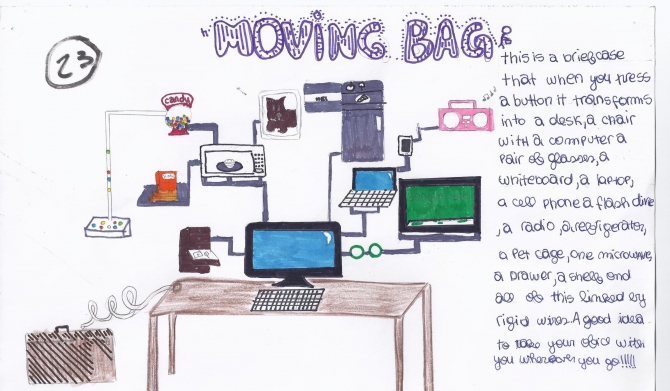 "MOVING BAG"
23
candy
this is a briefcase
that when you press
a button it transforms
into a desk, a chair
with a computer a
pair of glasses, a
whiteboard, a laptop,
a cell phone a flash drive
, a radio, a refrigerator,
a pet cage, one microwave,
a drawer, a shelf and
all of this linked by
rigid wires. A good idea
to take your ofice with
you wherever you go!!!!!